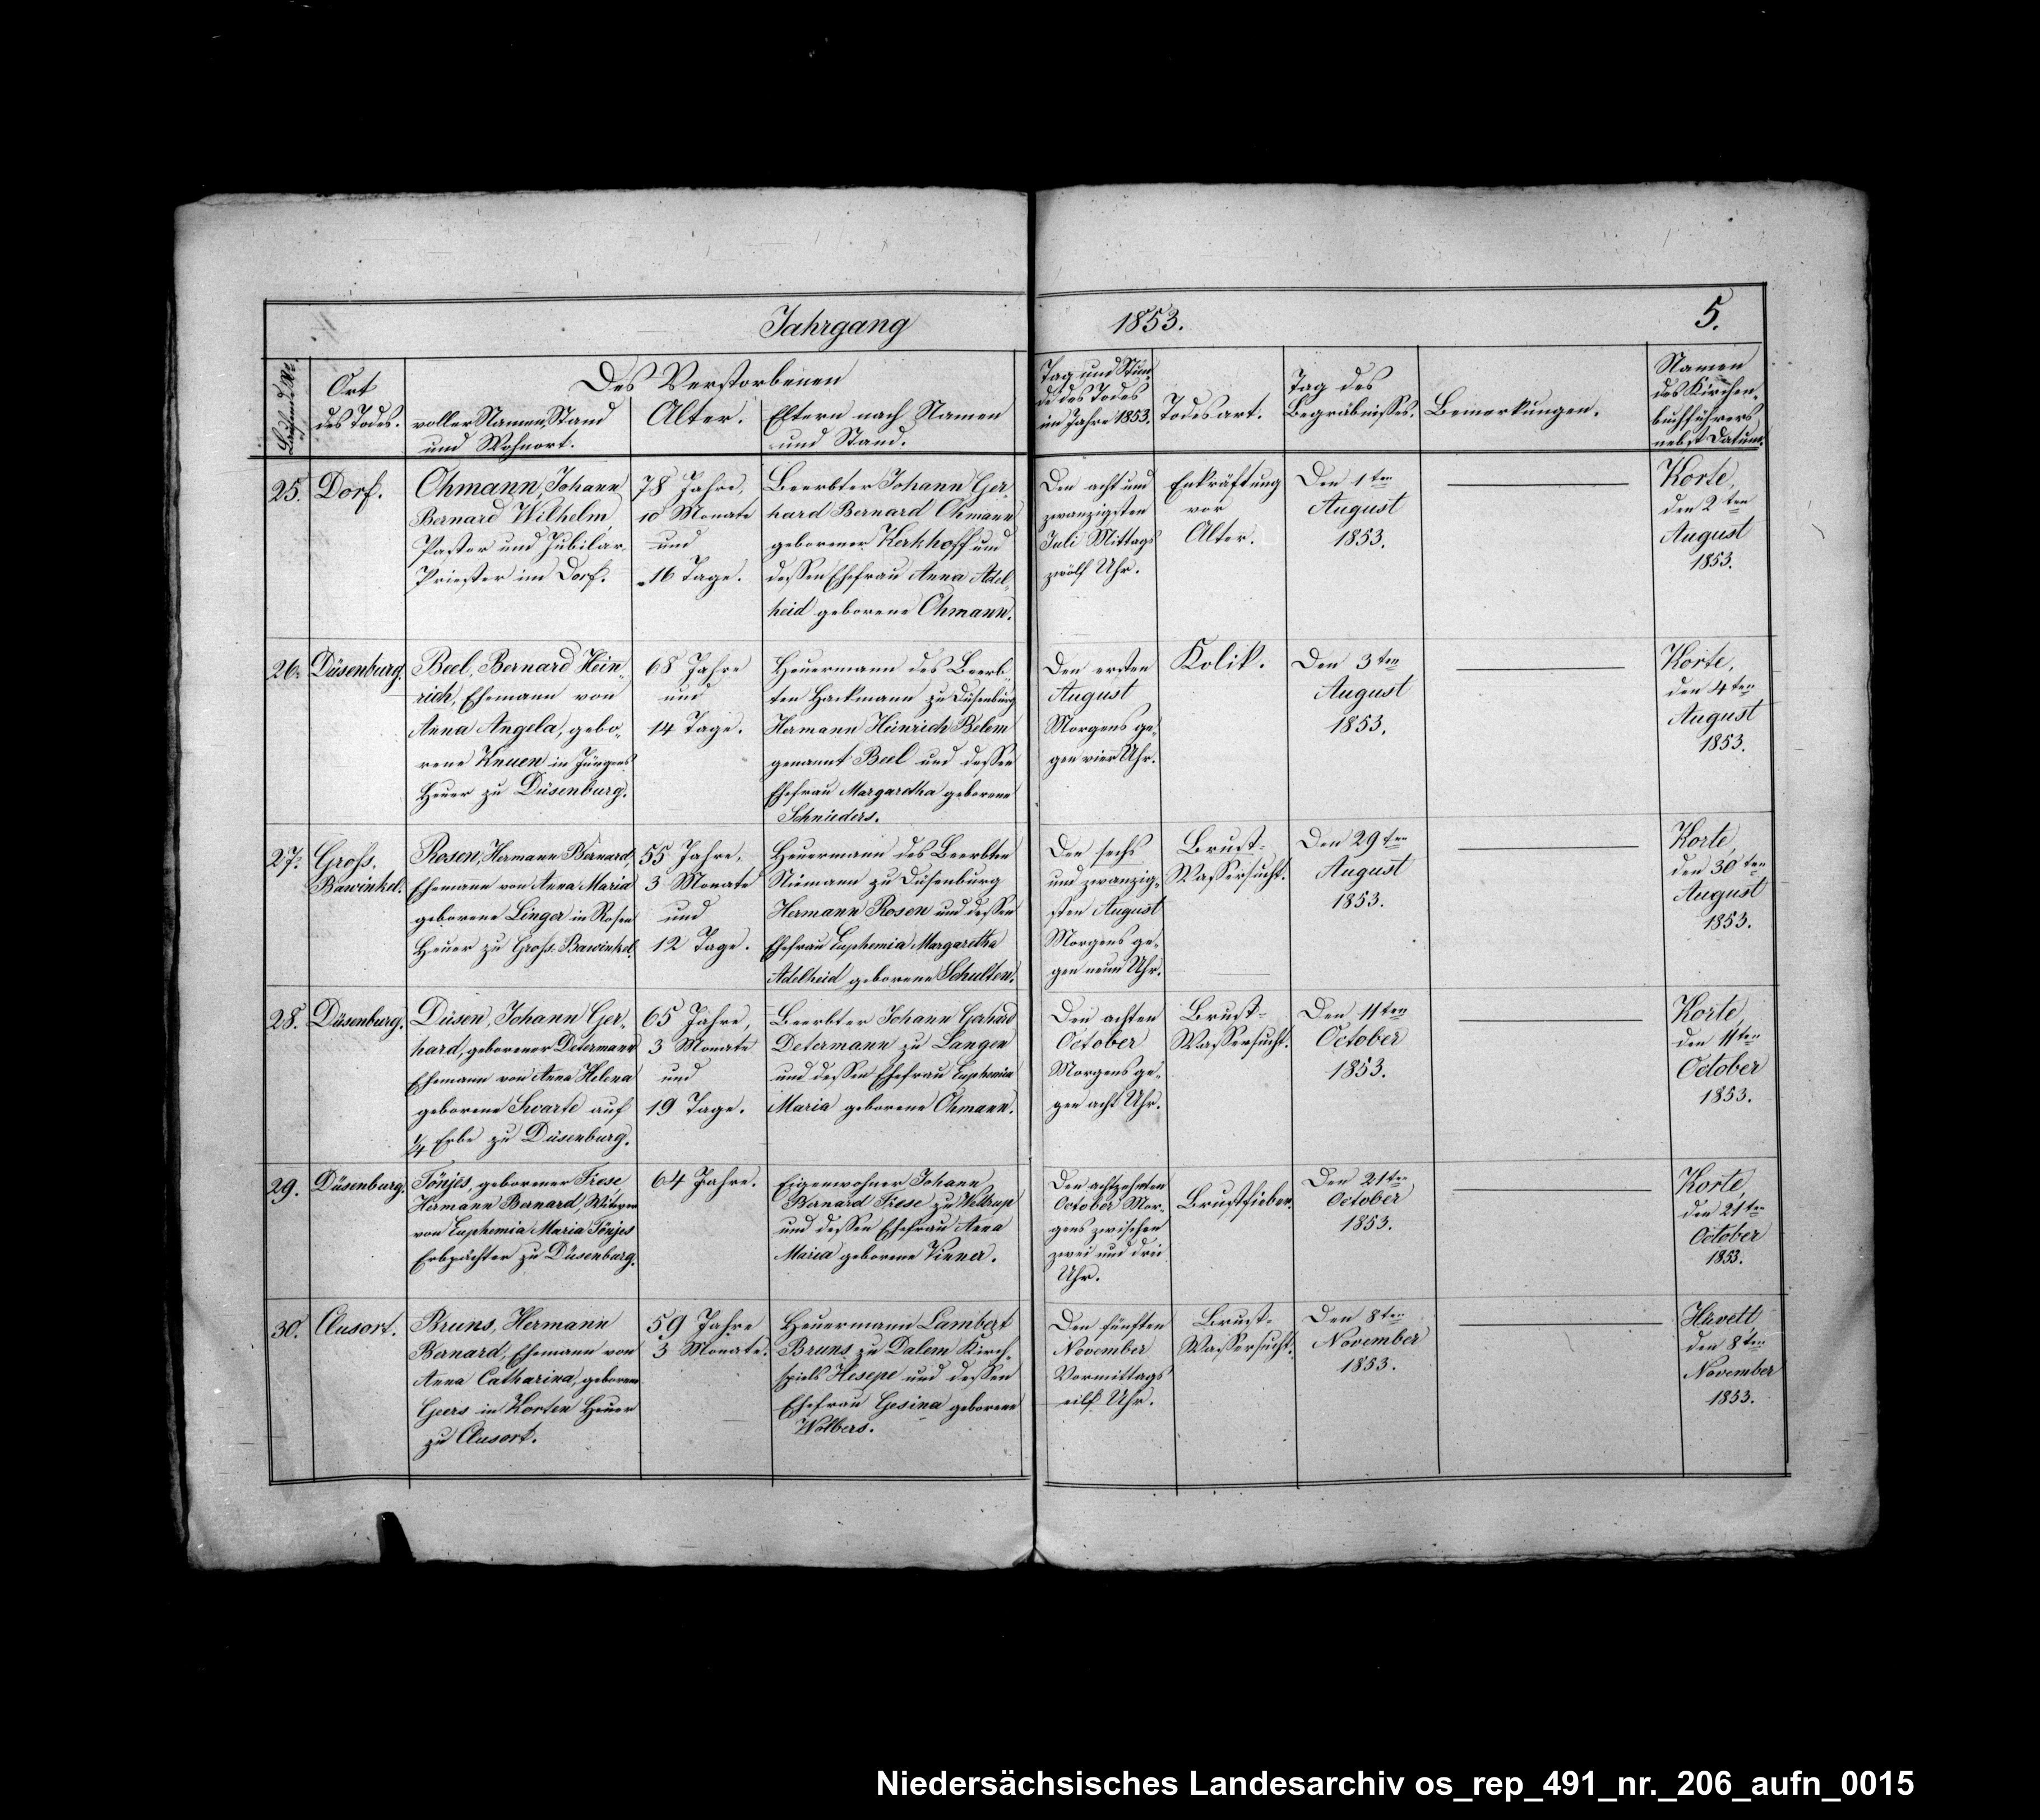 Jahrgang 1853. 5.
Laufende Nr.
Ort
des Todes.
Des Verstorbenen
voller Namen, Stand
und Wohnort.
Alter.
Eltern nach Namen
und Stand.
Tag und Stun-
de des Todes
im Jahre 1853.
Todesart.
Tag des
Begräbnisses.
Bemerkungen.
Namen
des Kirchen-
buchführers
nebst Datum.
25.
Dorf.
Ohmann, Johann
Bernard Wilhelm,
Pastor und Jubilar-
Priester im Dorf.
78 Jahre,
10 Monate
und
16 Tage.
Beerbter Johann Ger-
hard Bernard Ohmann
geborener Kerkhoff und
dessen Ehefrau Anna Adel-
heid geborene Ohmann.
Den acht und
zwanzigsten
Juli Mittags
zwölf Uhr.
Enkräftung
vor
Alter.
Den 1ten
August
1853.
Korte,
den 2ten
August
1853.
26.
Düsenburg.
Beel, Bernard Hein-
rich, Ehemann von
Anna Angela, gebo-
rene Knuen in Jüngens
Heuer zu Düsenburg.
68 Jahre
und
14 Tage.
Heuermann des Beerb-
ten Hackmann zu Düsenburg
Hermann Heinrich Belem
genannt Beel und dessen
Ehefrau Margaretha geborene
Schnieders.
Den ersten
August
Morgens ge-
gen vier Uhr.
Kolik.
Den 3ten
August
1853.
Korte,
den 4ten
August
1853.
27.
Gross.
Bawinkel.
Rosen, Hermann Bernard,
Ehemann von Anna Maria
geborene Linger in Rosen
Heuer zu Gross. Bawinkel.
55 Jahre,
3 Monate
und
12 Tage.
Heuermann des Beerbten
Niemann zu Düsenburg
Hermann Rosen und dessen
Ehefrau Euphemia Margaretha
Adelheid geborene Schulten.
Den sechs
und zwanzig-
sten August
Morgens ge-
gen neun Uhr.
Brust-
Wassersucht.
Den 29ten
August
1853.
Korte,
den 30ten
August
1853.
28.
Düsenburg.
Düsen, Johann Ger-
hard, geborener Determann
Ehemann von Anna Helena
geborene Swarte auf
1/4 Erbe zu Düsenburg.
65 Jahre,
3 Monate
und
19 Tage.
Beerbter Johann Gerhard
Determann zu Langen
und dessen Ehefrau Euphemia
Maria geborene Ohmann.
Den achten
October
Morgens ge-
gen acht Uhr.
Brust-
Wassersucht.
Den 11ten
October
1853.
Korte,
den 11ten
October
1853.
29.
Düsenburg.
Tönjes, geborener Frese
Hermann Bernard, Witwer
von Euphemia Maria Tönjes
Erbpächter zu Düsenburg.
64 Jahre.
Eigenwohner Johann
Bernard Frese zu Wettrup
und dessen Ehefrau Anna
Maria geborene Vinner.
Den achtzehnten
October Mor-
gens zwischen
zwei und drei
Uhr.
Brustfieber.
Den 21ten
October
1853.
Korte,
den 21ten
October
1853.
30.
Clusort.
Bruns, Hermann
Bernard, Ehemann von
Anna Catharina, geborene
Geers in Korten Heuer
zu Clusort.
59 Jahre
3 Monate.
Heuermann Lambert
Bruns zu Dalem Kirch-
spiels Hesepe und dessen
Ehefrau Gesina geborene
Wolbers.
Den fünften
November
Vormittags
eilf Uhr.
Brust-
Wassersucht.
Den 8ten
November
1853.
den 8ten
November
1853.
Niedersächsisches Landesarchiv os_rep_491_nr._206_aufn_0015